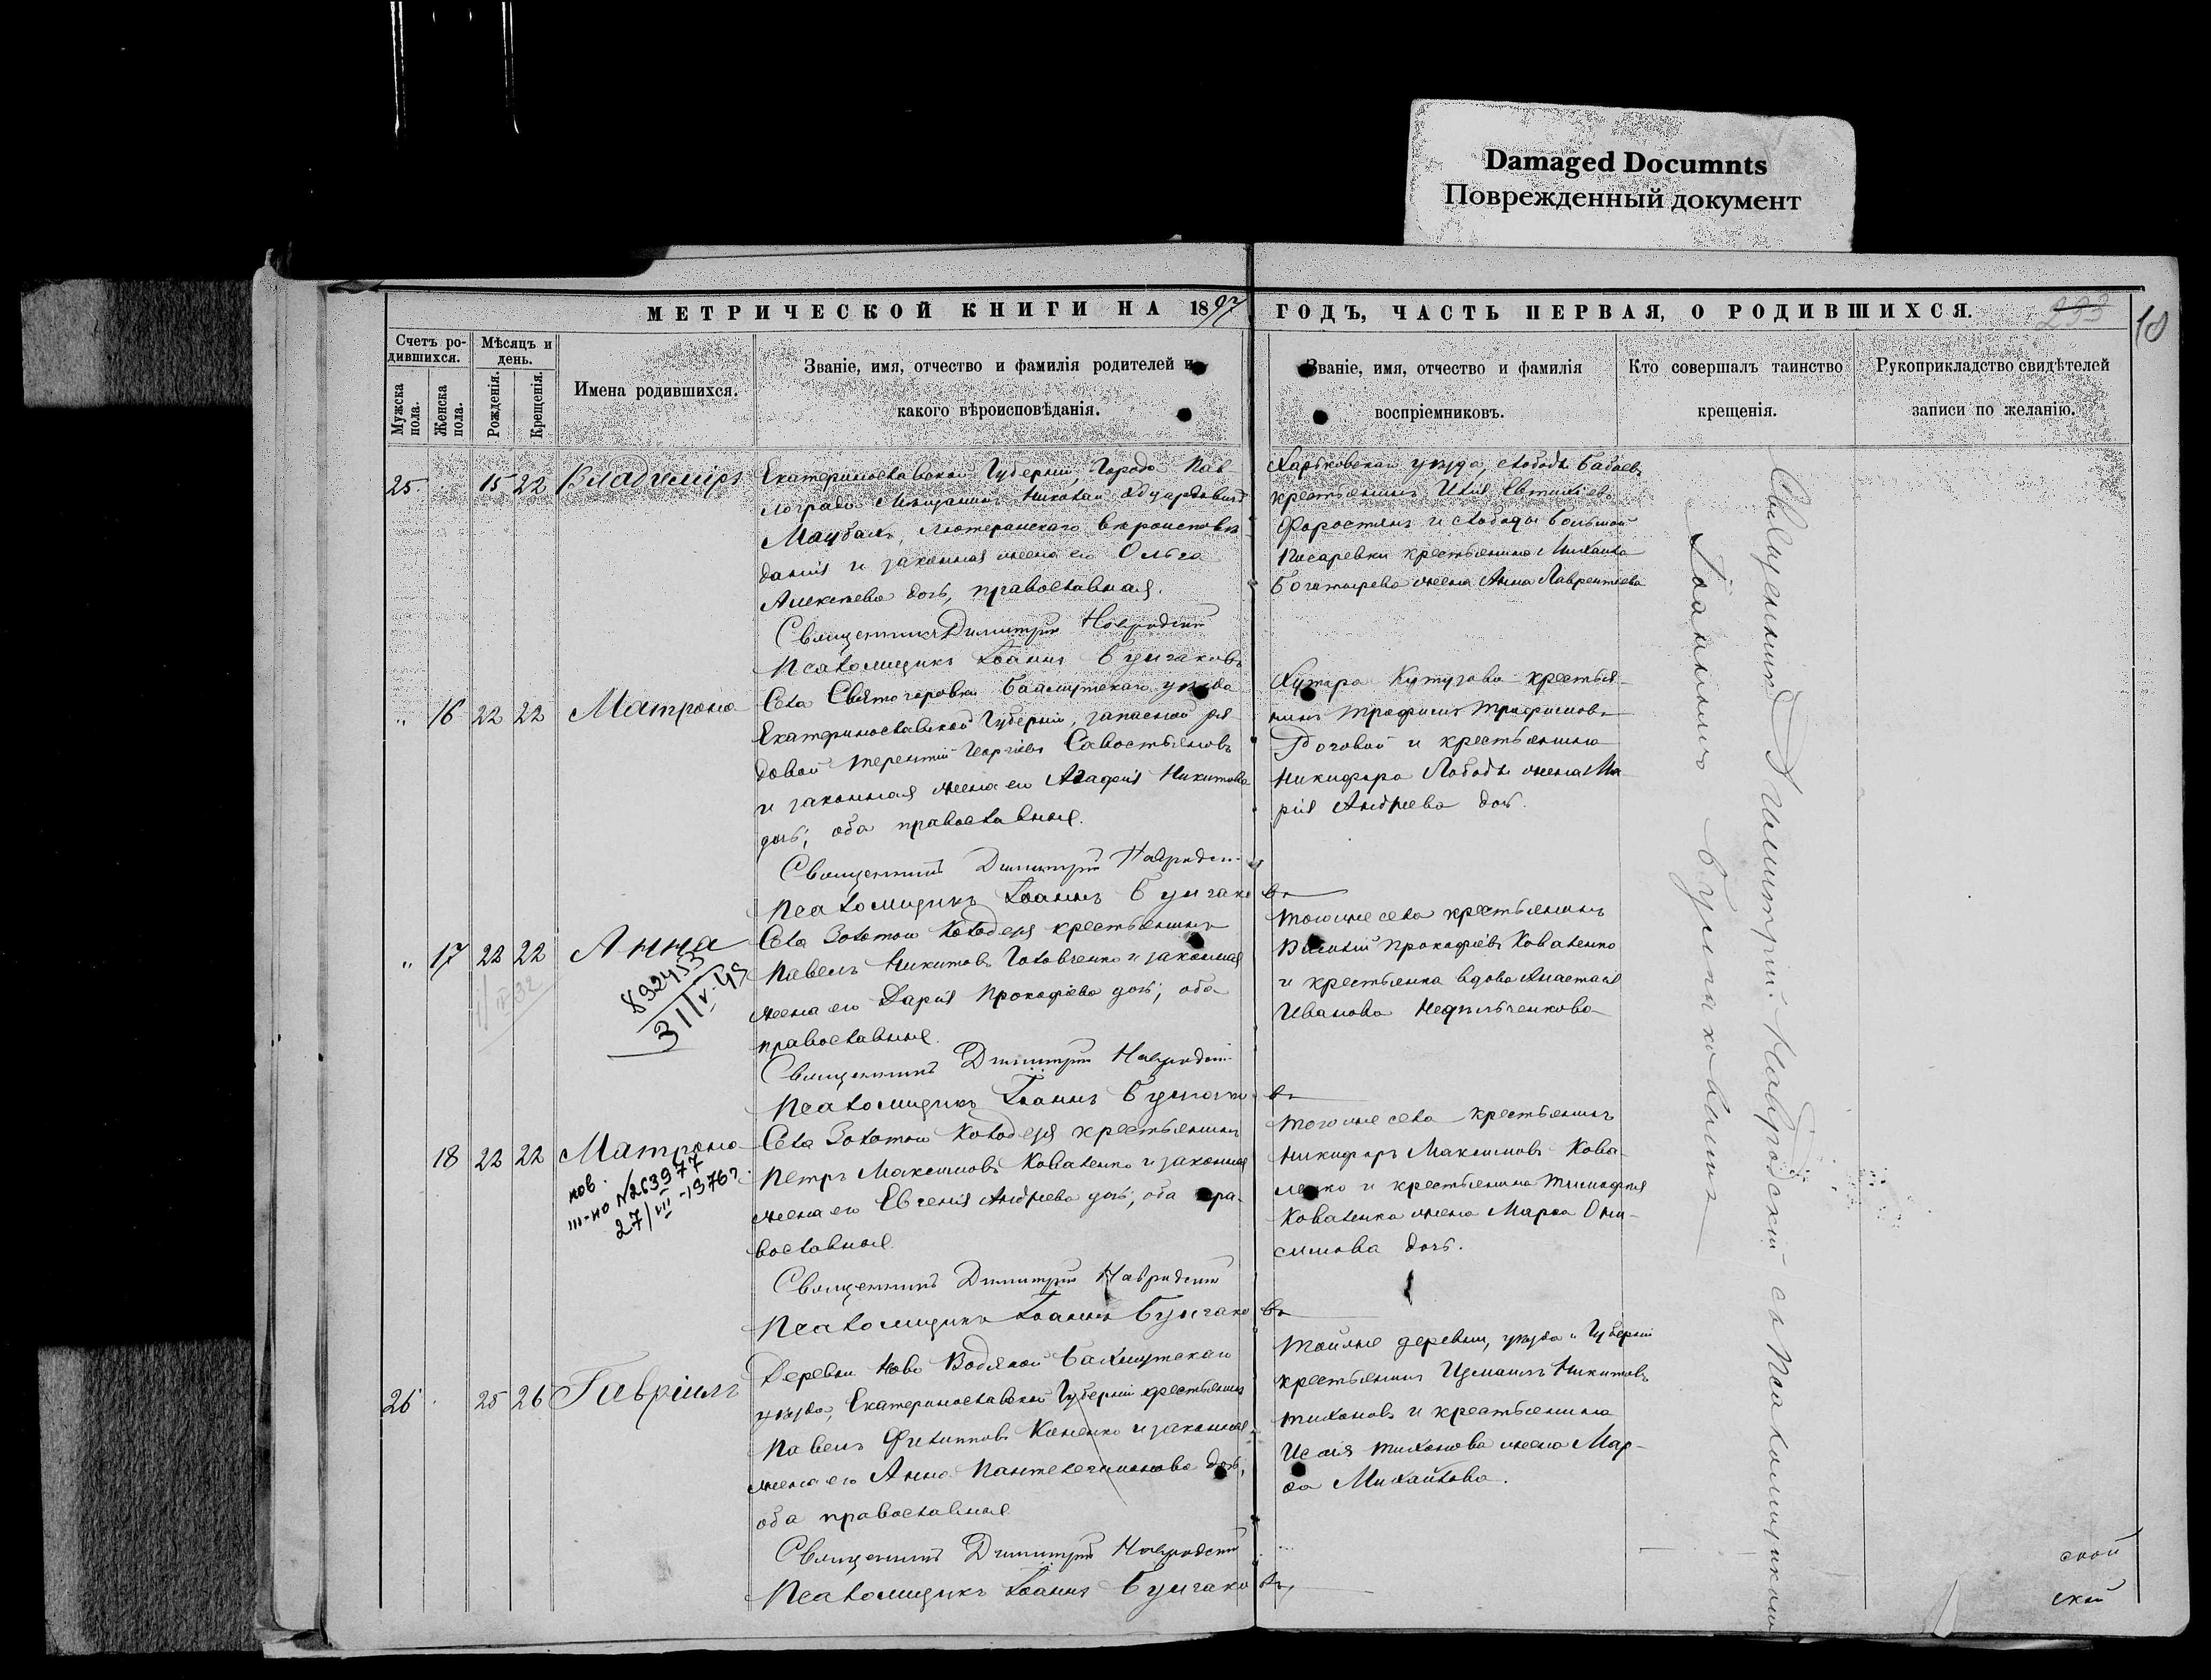 Damaged Documnts
Поврежденный документ
МЕТРИЧЕСКОЙ КНИГИ НА 1897 ГОДЪ, ЧАСТЬ ПЕРВАЯ, О РОДИВШИХСЯ.
233
10
Счетъ ро-
дившихся.
Мужска пола.
Женска пола.
Мѣсяцъ и
день.
Рожденія.
Крещенія.
Имена родившихся.
Званіе, имя, отчество и фамилія родителей и
какого вѣроисповѣданія.
Званіе, имя, отчество и фамилія
воспріемниковъ.
Кто совершалъ таинство
крещенія.
Рукоприкладство свидѣтелей
записи по желанію.
25 15 22 Владиміръ
Екатеринославской Губерніи, Города Пав-
лограда Мѣщанинъ Николай Эдуардовичъ
лютеранскаго вѣроисповѣ-
данія и законная жена его Ольга
Алексѣева дочь, православная.
Священникъ Димитрій Навродскій
Псаломщикъ Іоаннъ Булгаковъ
Харьковскаго уѣзда, слободы Бабаевъ
крестьянинъ Илія Евтихіевъ
Форостянъ и слободы Большой
Писаревки крестьянина Михаила
Богатырева жена Анна Лаврентьева
" 16 22 22 Матрона
Села Святогоровки Бахмутскаго уѣзда
Екатеринославской Губерніи, запасной ря-
довой Терентій Георгіевъ Савостьяновъ
и законная жена его Агафія Никитова
дочь; оба православные.
Священникъ Димитрій Навродскій
Псаломщикъ Іоаннъ Булгаковъ
Хутора Кутузова крестья-
нинъ Трофимъ Трофимовъ
Роговой и крестьянина
Никифора Лободы жена Ма-
рія Андреева дочь.
" 17 22 22 Анна
892453
31/V-45
1/IV 32
Села Золотой Колодезя крестьянинъ
Павелъ Никитовъ Головченко и законная
жена его Дарія Прокофіева дочь; оба
православные.
Священникъ Димитрій Навродскій
Псаломщикъ Іоаннъ Булгаковъ
того же села крестьянинъ
Василій Прокофіевъ Коваленко
и крестьянка вдова Анастасія
Иванова
18 22 22 Матрона
пов.
№263977
27/VII-1976г.
Села Золотой Колодезя крестьянинъ
Петръ Максимовъ Коваленко и законная
жена его Евгенія Андреева дочь; оба пра-
вославные.
Священникъ Димитрій Навродскій
Псаломщикъ Іоаннъ Булгаковъ
того же села крестьянинъ
Никифоръ Максимовъ Кова-
ленко и крестьянина Тимофея
Коваленка жена Марѳа Они-
симова дочь.
26 25 26 Гавріилъ
Деревни Ново Водяной Бахмутскаго
уѣзда, Екатеринославской Губерніи крестьянинъ
Павелъ Филипповъ и законная
жена его Анна Пантелеимонова дочь,
оба православные.
Священникъ Димитрій Навродскій
Псаломщикъ Іоаннъ Булгаковъ
той же деревни, уѣзда и Губерніи
крестьянинъ Измаилъ Никитовъ
Тихоновъ и крестьянина
Исаія Тихонова жена Мар-
ѳа Михайлова.
Священникъ Димитрій Навродскій съ Псаломщикомъ
Іоанномъ Булгаковымъ
ской
ской